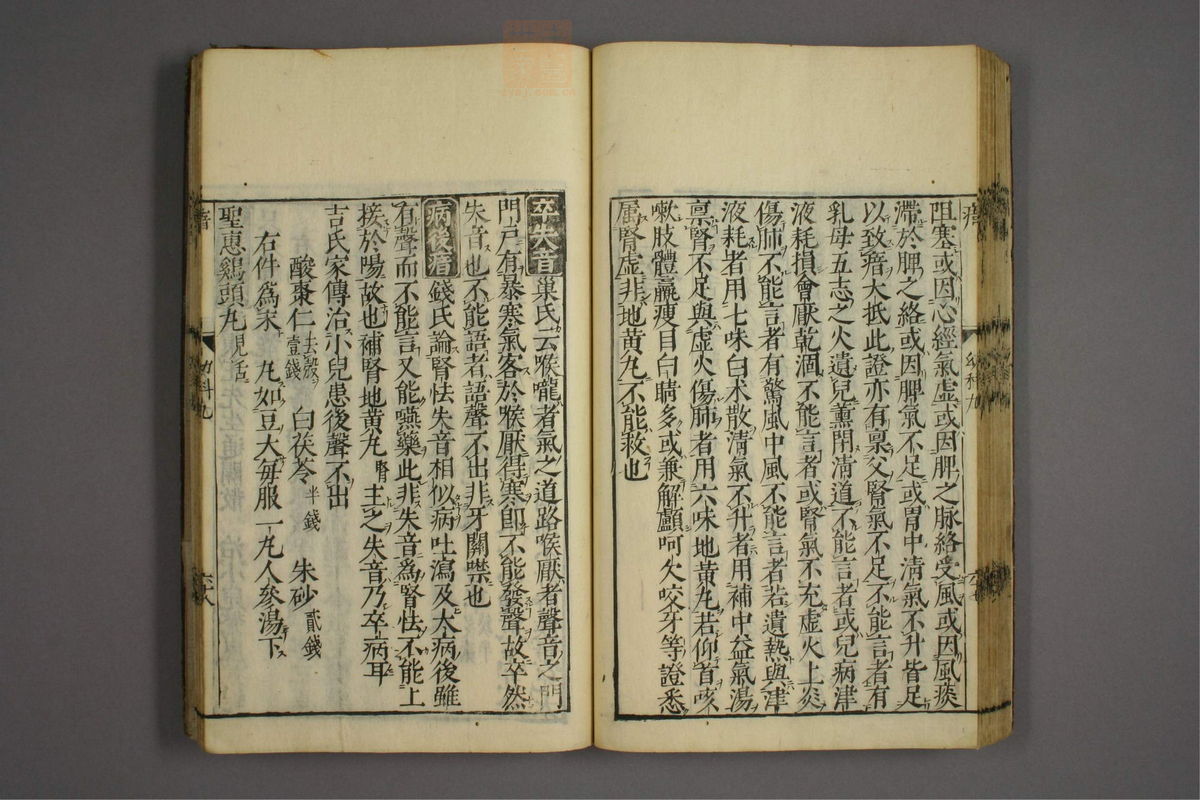 阻塞或因心經氣虛或因脾之脉絡受風或因風痰
滯於脾之絡或因脾氣不足或胃中清氣不升皆足
以致瘖大抵此證亦有稟父腎氣不足不能言者有
乳母五志之火遺兒薰閉清道不能言者或兒病津
液耗損會厭乾涸不能言者或腎氣不充虛火上炎
傷肺不能言者有驚風中風不能言者若遺熱與津
液耗者用七味白术散清氣不升者用補中益氣湯
稟腎不足與虛火傷肺者用六味地黄丸若仰首咳
嗽肢體羸瘦目白睛多或兼解顱呵欠咬牙等證悉
属腎虛非地黄丸不能救也
瘖
幼科九
卒失音 巢氏云喉嚨者氣之道路喉厭者聲音之門
門戸有暴寒氣客於喉厭得寒卽不能發聲故卒然
失音也不能語者語聲不出非牙關噤也
病後瘖 錢氏論腎怯失音相似病吐瀉及大病後雖
有聲而不能言又能嚥藥此非失音爲腎怯不能上
接於陽故也補腎地黄丸腎主之失音乃卒病耳
吉氏家傳治小兒患後聲不出
酸棗仁去殼壹錢 白茯苓半錢 朱砂貳錢
右件爲末 丸如豆大毎服一丸人參湯下
聖惠鷄頭丸見活
瘖
幼科九
六八